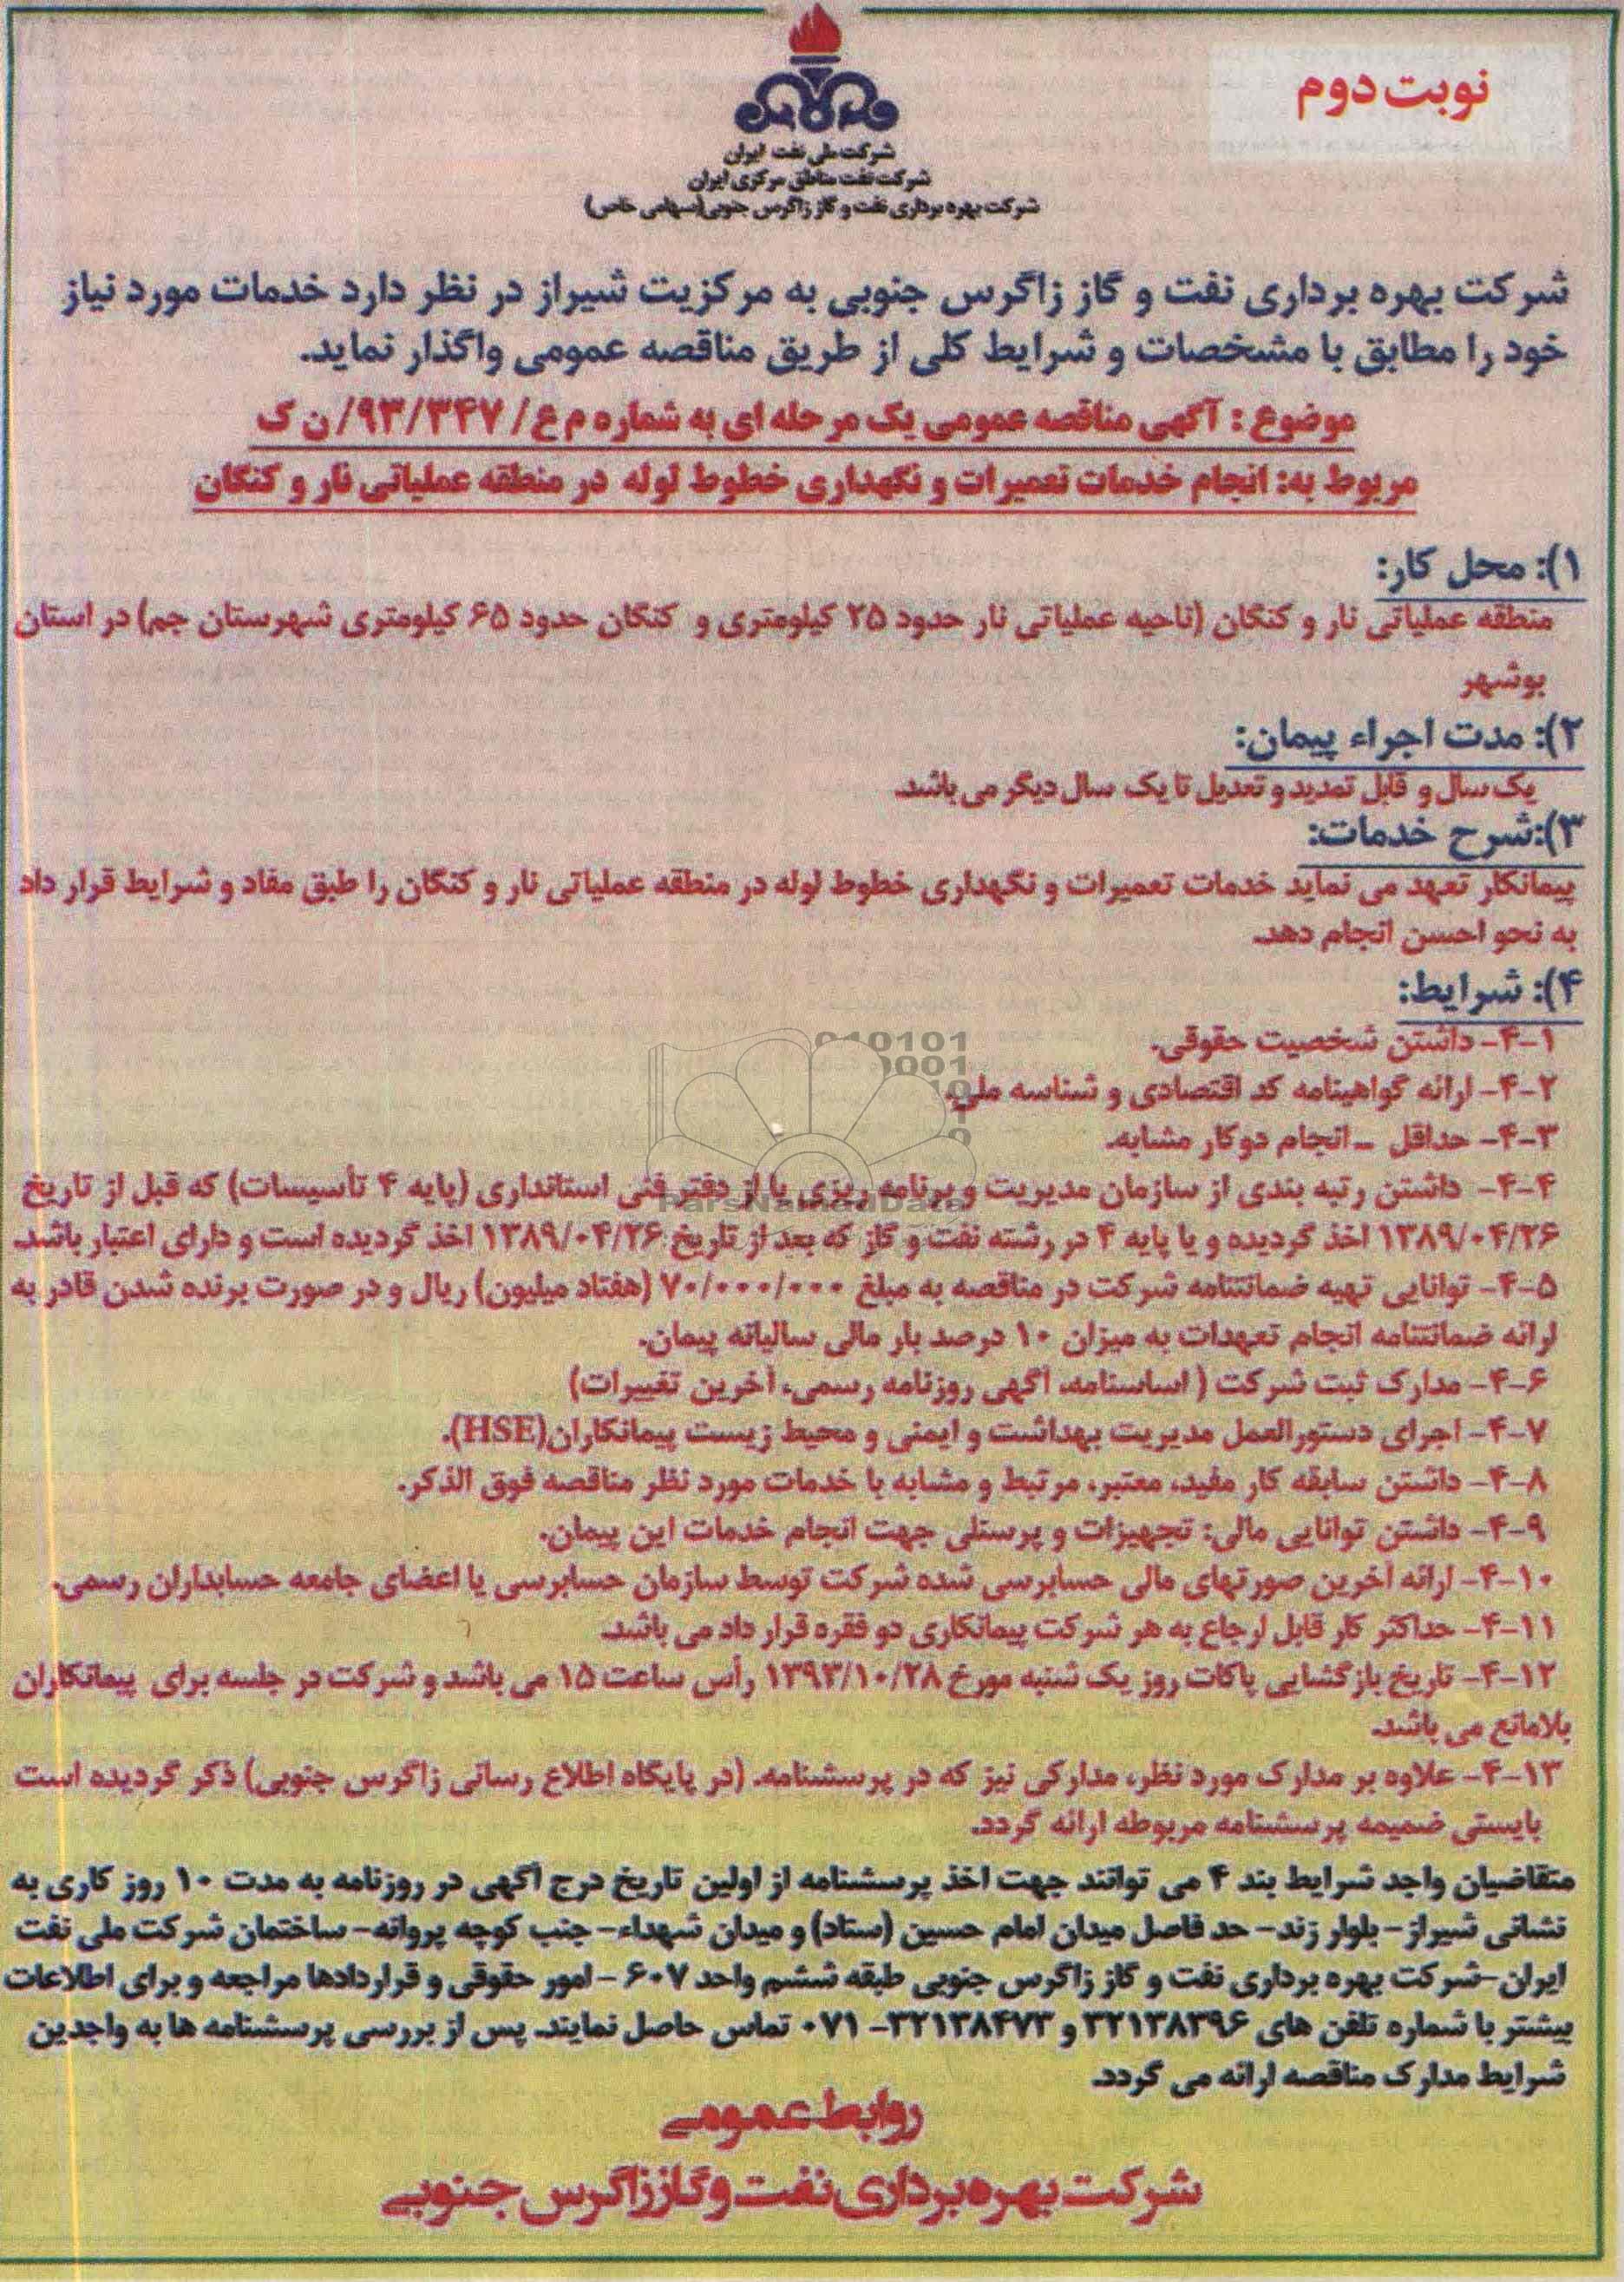 نوبت دوم
شرکت ملی نفت ایران
شرکت نفت مناطق مرکزی ایران
شرکت بهره برداری نفت و گاز زاگرس جنوبی(سهامی خاص)
شرکت بهره برداری نفت و گاز زاگرس جنوبی به مرکزیت شیراز در نظر دارد خدمات مورد نیاز
خود را مطابق با مشخصات و شرایط کلی از طریق مناقصه عمومی واگذار نماید.
موضوع : آگهی مناقصه عمومی یک مرحله ای به شماره م ع/ ۹۳/۳۴۷/ ن ک
مربوط به: انجام خدمات تعمیرات و نگهداری خطوط لوله در منطقه عملیاتی نار و کنگان
۱): محل کار:
منطقه عملیاتی نار و کنگان (ناحیه عملیاتی نار حدود ۲۵ کیلومتری و کنگان حدود ۶۵ کیلومتری شهرستان جم) در استان
بوشهر
۲): مدت اجراء پیمان:
یک سال و قابل تمدید و تعدیل تا یک سال دیگر می باشد.
۳):شرح خدمات:
پیمانکار تعهد می نماید خدمات تعمیرات و نگهداری خطوط لوله در منطقه عملیاتی نار و کنگان را طبق مفاد و شرایط قرار داد
به نحو احسن انجام دهد.
۴): شرایط:
۴-۱- داشتن شخصیت حقوقی.
۴-۲- ارائه گواهینامه کد اقتصادی و شناسه ملی.
۴-۳- حداقل – انجام دو کار مشابه.
۴-۴- داشتن رتبه بندی از سازمان مدیریت و برنامه ریزی یا از دفتر فنی استانداری (پایه ۴ تأسیسات) که قبل از تاریخ
۱۳۸۹/۰۴/۲۶ اخذ گردیده و یا پایه ۴ در رشته نفت و گاز که بعد از تاریخ ۱۳۸۹/۰۴/۲۶ اخذ گردیده است و دارای اعتبار باشد.
۴-۵- توانایی تهیه ضمانتنامه شرکت در مناقصه به مبلغ ۷۰/۰۰۰/۰۰۰ (هفتاد میلیون) ریال و در صورت برنده شدن قادر به
ارائه ضمانتنامه انجام تعهدات به میزان ۱۰ درصد بار مالی سالیانه پیمان.
۴-۶- مدارک ثبت شرکت ( اساسنامه، آگهی روزنامه رسمی، آخرین تغییرات)
۴-۷- اجرای دستورالعمل مدیریت بهداشت و ایمنی و محیط زیست پیمانکاران(HSE).
۴-۸- داشتن سابقه کار مفید، معتبر، مرتبط و مشابه با خدمات مورد نظر مناقصه فوق الذکر.
۴-۹- داشتن توانایی مالی: تجهیزات و پرسنلی جهت انجام خدمات این پیمان.
۴-۱۰- ارائه آخرین صورتهای مالی حسابرسی شده شرکت توسط سازمان حسابرسی یا اعضای جامعه حسابداران رسمی.
۴-۱۱- حداکثر کار قابل ارجاع به هر شرکت پیمانکاری دو فقره قرار داد می باشد.
۴-۱۲- تاریخ بازگشایی پاکات روز یک شنبه مورخ ۱۳۹۳/۱۰/۲۸ رأس ساعت ۱۵ می باشد و شرکت در جلسه برای پیمانکاران
بلامانع می باشد.
۴-۱۳- علاوه بر مدارک مورد نظر، مدارکی نیز که در پرسشنامه. (در پایگاه اطلاع رسانی زاگرس جنوبی) ذکر گردیده است
بایستی ضمیمه پرسشنامه مربوطه ارائه گردد.
متقاضیان واجد شرایط بند ۴ می توانند جهت اخذ پرسشنامه از اولین تاریخ درج آگهی در روزنامه به مدت ۱۰ روز کاری به
نشانی شیراز- بلوار زند- حد فاصل میدان امام حسین (ستاد) و میدان شهداء- جنب کوچه پروانه- ساختمان شرکت ملی نفت
ایران-شرکت بهره برداری نفت و گاز زاگرس جنوبی طبقه ششم واحد ۶۰۷ - امور حقوقی و قراردادها مراجعه و برای اطلاعات
بیشتر با شماره تلفن های ۳۲۱۳۸۳۹۶ و ۳۲۱۳۸۴۷۳- ۰۷۱ تماس حاصل نمایند. پس از بررسی پرسشنامه ها به واجدین
شرایط مدارک مناقصه ارائه می گردد.
روابط عمومی
شرکت بهره برداری نفت و گاز زاگرس جنوبی
ParsNamadData